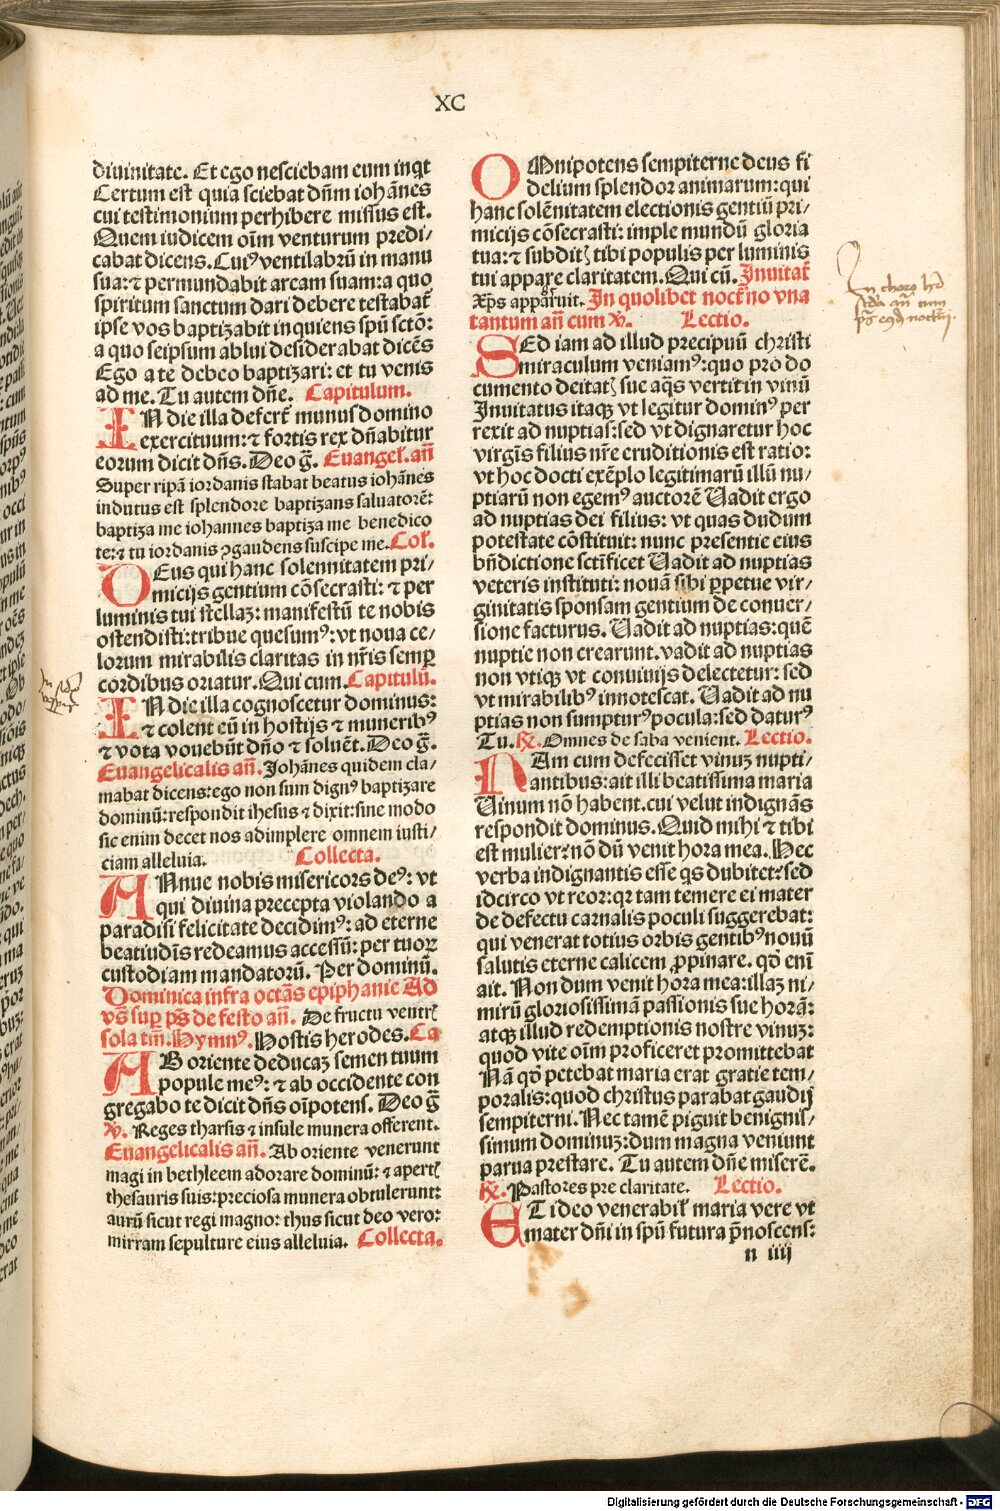 XC
diuinitate. Et ego nesciebam eum inqͥt
Certum est quia sciebat dn̄m iohānes
cui testimonium perhibere missus est.
Quem iudicem oīm venturum predi/
cabat dicens. Cuiꝰ ventilabrū in manu
sua: ⁊ permundabit arcam suam: a quo
spiritum sanctum dari debere testabat᷑
ipse vos baptizabit inquiens spū sctō:
a quo seipsum ablui desiderabat dicēs
Ego a te debeo baptizari: et tu venis
ad me. Tu autem dn̄e. Capitulum.
IN die illa defert᷑ munus domino
exercituum: ⁊ fortis rex dn̄abitur
eorum dicit dn̄s. Deo g̅. Euangel. an̄
Super ripā iordanis stabat beatus iohānes
indutus est splendore baptizans saluatorē:
baptiza me iohannes baptiza me benedico
te: ⁊ tu iordanis ꝯgaudens suscipe me. Col.
DEus qui hanc solennitatem pri/
micijs gentium cōsecrasti: ⁊ per
luminis tui stellaꝫ: manifestū te nobis
ostendisti: tribue quesumꝰ: vt noua ce/
lorum mirabilis claritas in nr̄is semꝑ
cordibus oriatur. Qui cum. Capitulū.
IN die illa cognoscetur dominus:
⁊ colent eū in hostijs ⁊ muneribꝰ
⁊ vota vouebūt dn̄o ⁊ soluēt. Deo g̅.
Euangelicalis an̄. Johānes quidem cla/
mabat dicens: ego non sum dignꝰ baptizare
dominū: respondit ihesus ⁊ dixit: sine modo
sic enim decet nos adimplere omnem iusti/
ciam alleluia. Collecta.
ANnue nobis misericors deꝰ: vt
qui diuina precepta violando a
paradisi felicitate decidimꝰ: ad eterne
beatiudīs redeamus accessū: per tuoꝝ
custodiam mandatorū. Per dominū.
Dominica infra octās epiphanie Ad
vs̄ suꝑ ps̄ de festo an̄. De fructu ventrꝭ
sola tm̄. Hymnꝰ. Hostis herodes. Ca
AB oriente deducaꝫ semen tuum
popule meꝰ: ⁊ ab occidente con
gregabo te dicit dn̄s oīpotens. Deo g̅
℣. Reges tharsis ⁊ insule munera offerent.
Euangelicalis an̄. Ab oriente venerunt
magi in bethleem adorare dominū: ⁊ apertꝭ
thesauris suis: preciosa munera obtulerunt:
aurū sicut regi magno: thus sicut deo vero:
mirram sepulture eius alleluia. Collecta.
OMnipotens sempiterne deus fi
delium splendor animarum: qui
hanc solēnitatem electionis gentiū pri/
micijs cōsecrasti: imple mundū gloria
tua: ⁊ subditꝭ tibi populis per luminis
tui appare claritatem. Qui cū. Inuitat᷑
Xp̄s apparuit. In quolibet noct᷑no vna
tantum an̄ cum ℣. Lectio.
SEd iam ad illud precipuū christi
miraculum veniamꝰ: quo pro do
cumento deitatꝭ sue aq̄s vertit in vinū
Inuitatus itaqꝫ vt legitur dominꝰ per
rexit ad nuptias: sed vt dignaretur hoc
virgīs filius nr̄e eruditionis est ratio:
vt hoc docti exēplo legitimarū illū nu/
ptiarū non egemꝰ auctorē Uadit ergo
ad nuptias dei filius: vt quas dudum
potestate cōstituit: nunc presentie eius
bn̄dictione sctīficet Uadit ad nuptias
veteris instituti: nouā sibi ꝑpetue vir/
ginitatis sponsam gentium de conuer/
sione facturus. Uadit ad nuptias: quē
nuptie non crearunt. vadit ad nuptias
non vtiqꝫ vt conuiuijs delectetur: sed
vt mirabilibꝰ innotescat. Uadit ad nu
ptias non sumpturꝰ pocula: sed daturꝰ
Tu. ℟. Omnes de saba venient. Lectio.
NAm cum defecisset vinuꝫ nupti/
antibus: ait illi beatissima maria
Uinum nō habent. cui velut indignās
respondit dominus. Quid mihi ⁊ tibi
est mulier: nō dū venit hora mea. Hec
verba indignantis esse q̄s dubitet: sed
idcirco vt reor: qꝛ tam temere ei mater
de defectu carnalis poculi suggerebat:
qui venerat totius orbis gentibꝰ nouū
salutis eterne calicem ꝓpinare. qd̄ enī
ait. Non dum venit hora mea: illaꝫ ni/
mirū gloriosissimā passionis sue horā:
atqꝫ illud redemptionis nostre vinuꝫ:
quod vite oīm proficeret promittebat
Nā qd̄ petebat maria erat gratie tem/
poralis: quod christus parabat gaudij
sempiterni. Nec tamē piguit benignis/
simum dominuꝫ: dum magna veniunt
parua prestare. Tu autem dn̄e miserē.
℟. Pastores pre claritate. Lectio.
ET ideo venerabil᷑ maria vere vt
mater dn̄i in spū futura p̄noscens:
n iiij
Digitalisierung gefördert durch die Deutsche Forschungsgemeinschaft - DFG